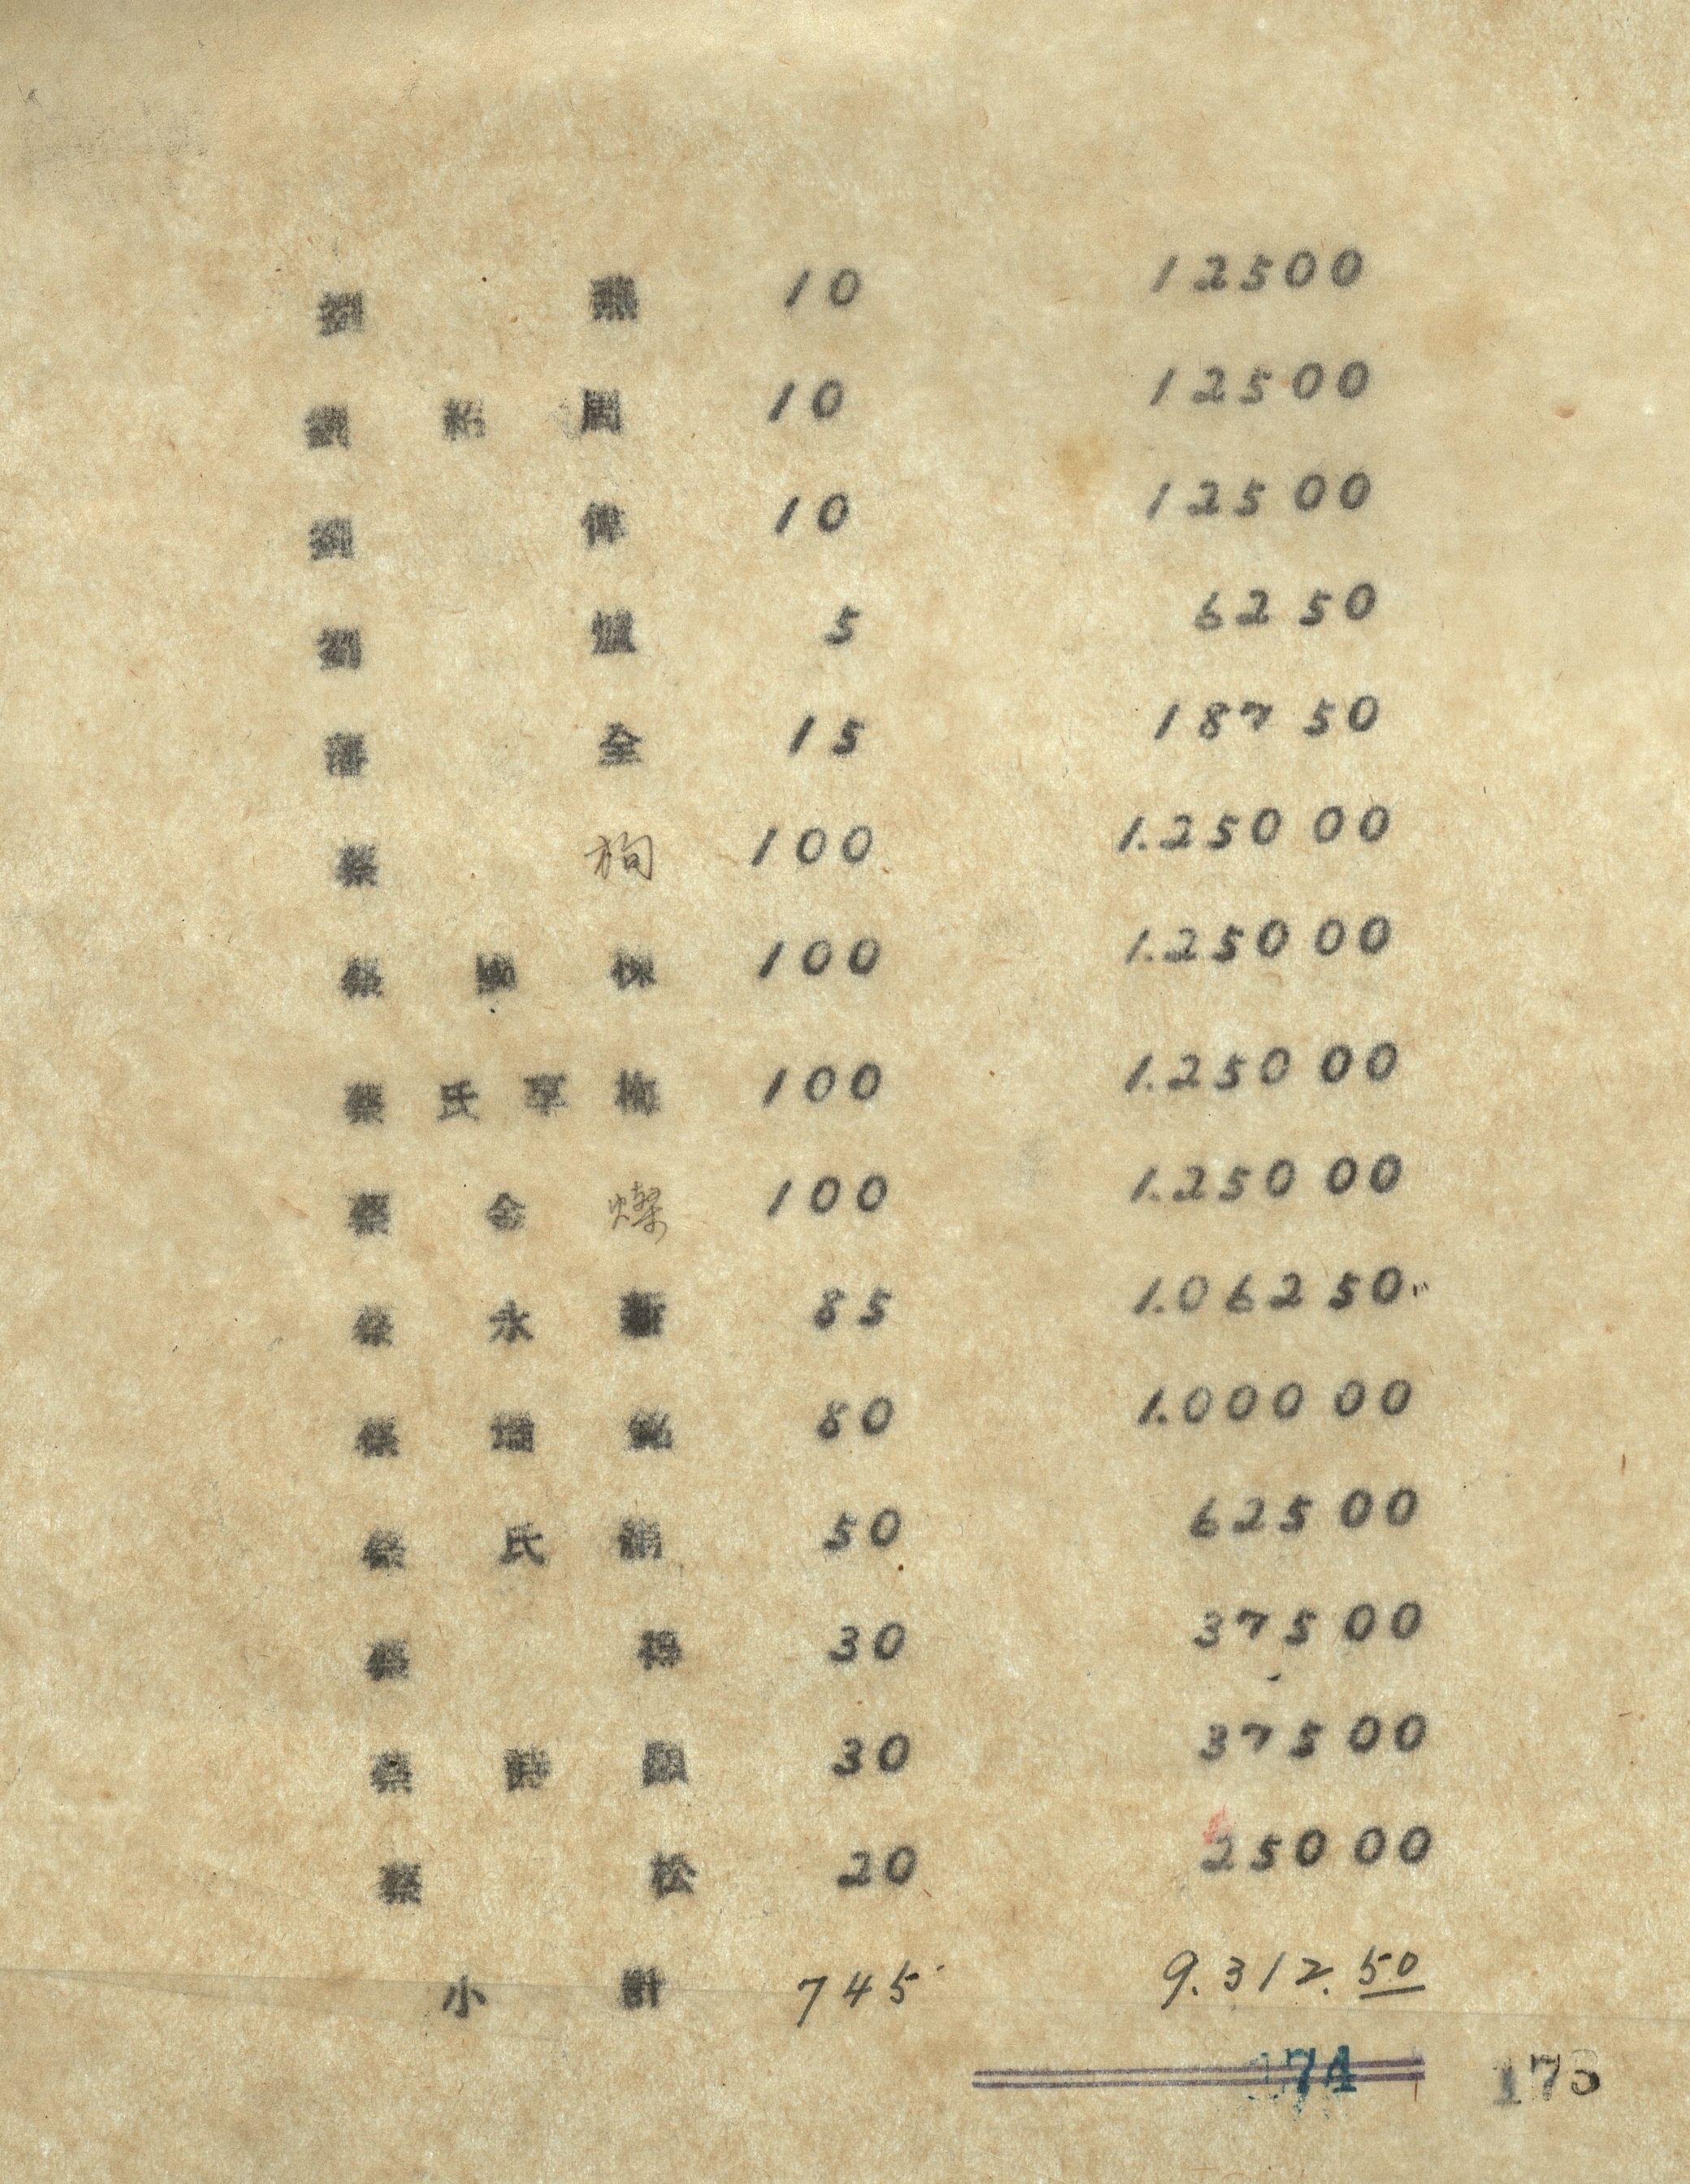 劉 10 12500
劉 紹 周 10 12500
劉 偉 10 12500
劉 5 6250
潘 全 15 187 50
蔡 100 1.250 00
蔡 100 1.250 00
蔡 氏 享 梅 100 1.250 00
蔡 金 燦 100 1.250 00
蔡 永 85 1.062 50
蔡 80 1.000 00
蔡 氏 50 625 00
蔡 30 375 00
蔡 30 375 00
蔡 松 20 250 00
小 計 745 9.312.50
174